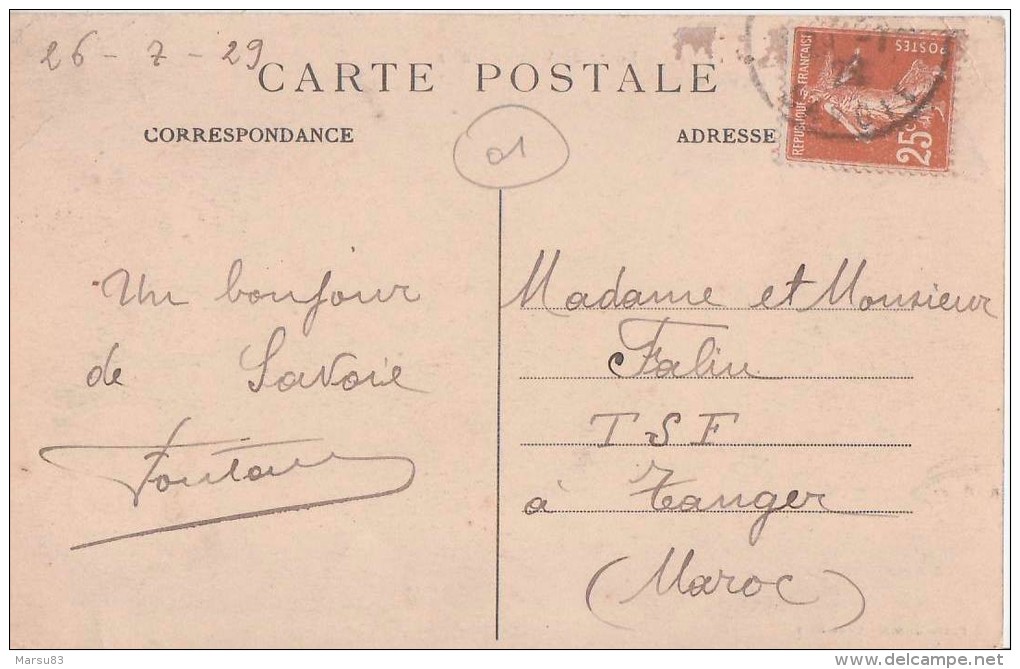 26-7-29
CARTE POSTALE
CORRESPONDANCE
ADRESSE
REPUBLIQUE FRANCAISE
POSTES
25c
01
Un bonjour
de Savoie
Madame et Monsieur
Falin
TSF
à Tanger
(Maroc)
Marsu83
delcampe.net